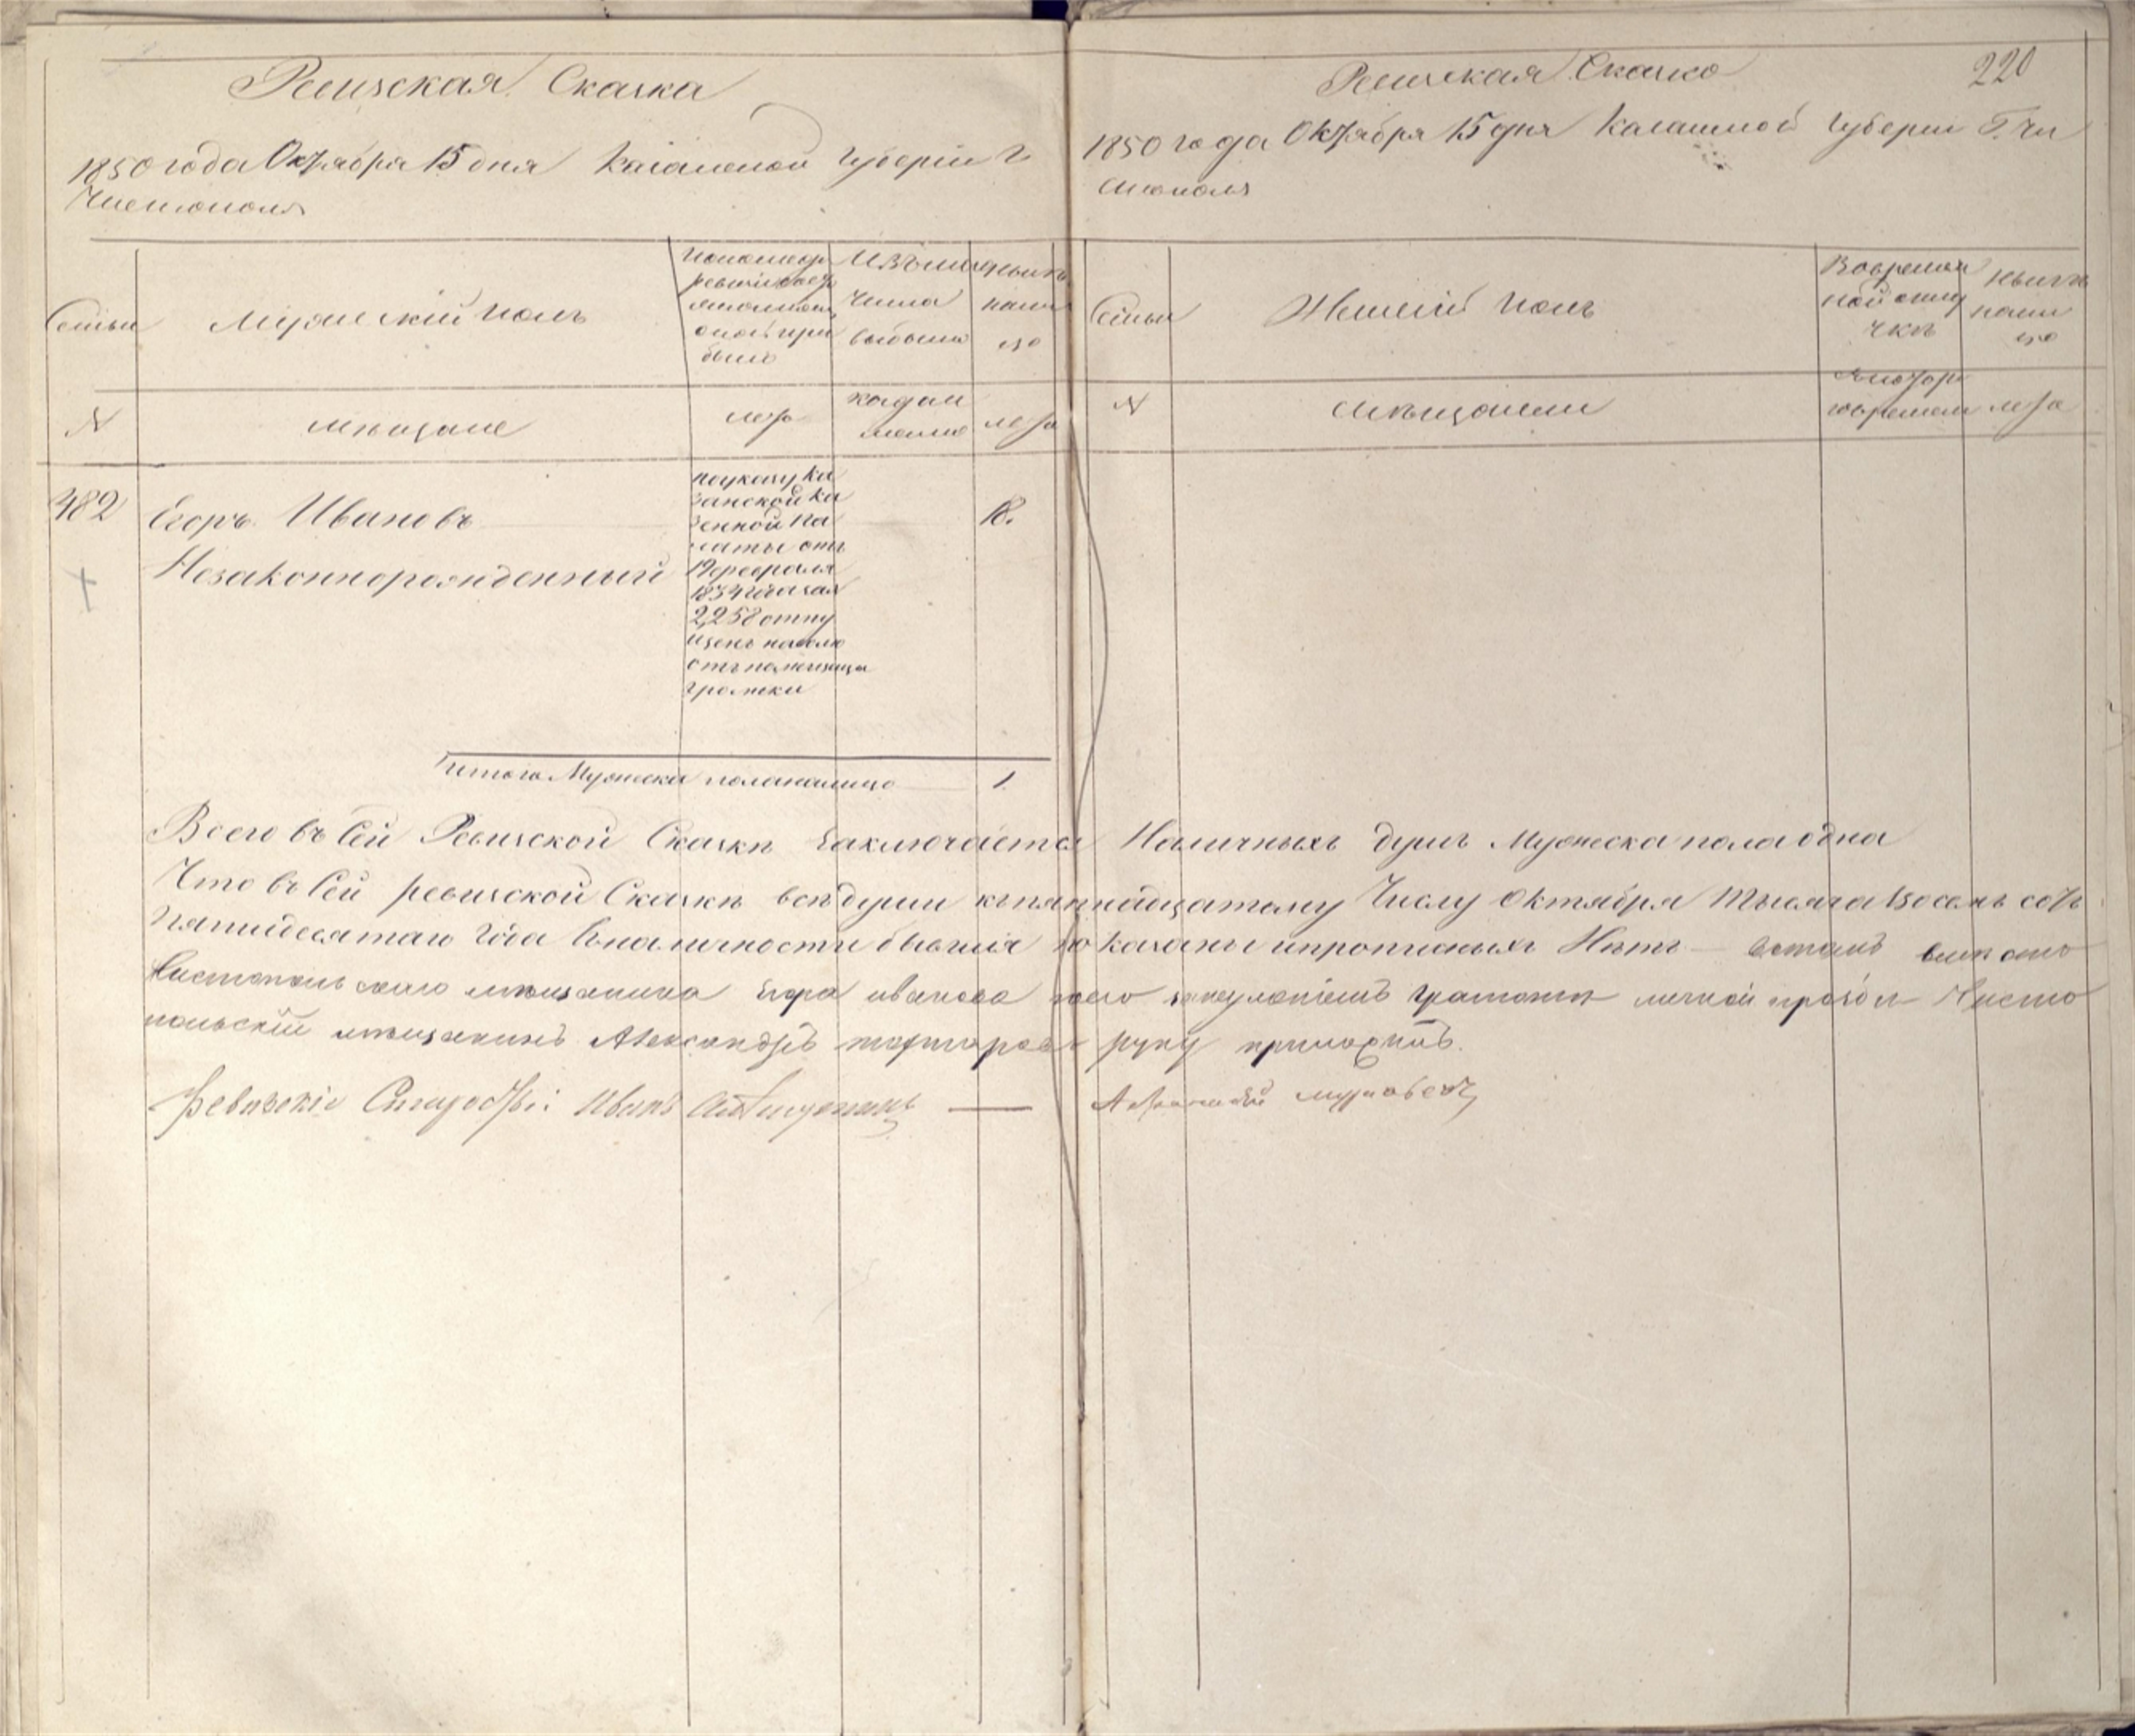 Ревизская Сказка
1850 года Октября 15 дня Казанской Губерніи г
Чистополя
Семьи
Мужескій полъ
По последн
ревизіи
состояло
оной при
было
Изъ того
числа
выбыло
ныне
нали
цо
N
мещане
лета
когда
именно
лета
482
Егоръ Ивановъ
Незаконнорожденный
по указу Ка
занской Ка
зенной Па
латы отъ
19 февраля
1834 года за
2,258 отпу
щенъ на волю
отъ помещицы
18.
Итого Мужеска пола налицо 1
220
Ревизская Сказка
1850 года Октября 15 дня Казанской Губерніи Г. Чи
стополя
Семьи
Женскій полъ
Во времен
ной отлу
чке
Ныне
нали
цо
N
мещанки
времени
лета
Всего въ Сей Ревизской Сказке заключается Наличныхъ душъ Мужеска пола одна
Что въ Сей ревизской Сказке все души къ пятнадцатому Числу Октября Тысяча восемь сотъ
Пятидесятаго Года въ наличности бывшія показаны и прописныхъ Нетъ
Чистопольскаго мещанина Егора Иванова грамоте личной прозбе Чисто
польскій мещанинъ Александръ руку приложилъ.
Ревизскіе Иванъ